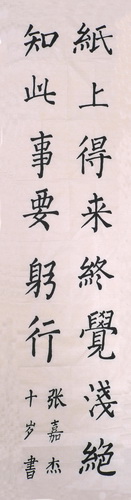 紙上得来終覺淺絕
知此事要躬行
张嘉杰
十岁書